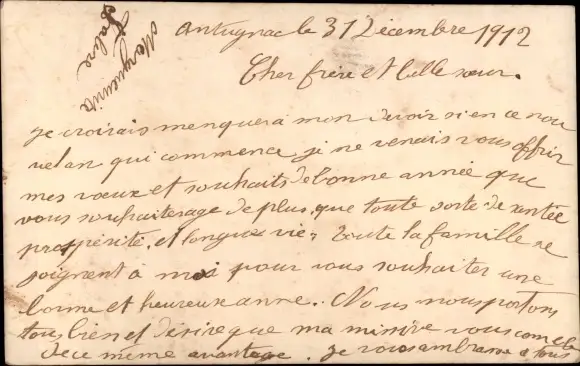 Antugnac le 31 Décembre 1912
Cher frère et belle sœur.
je croirais menquer a mon devoir si en ce nou
vel an qui commence, je ne venais vous offrir
mes vœux et souhaits de bonne année que
vous de plus, que toute sorte de santée
prospérité, et longue vie, toute la famille se
joignent à moi pour vous souhaiter une
bonne et heureuse anné. Nous nous portons
tous bien et désire que ma missive vous
de ce même avantage. je vous ambrasse a tous
Marguerite
Fabre